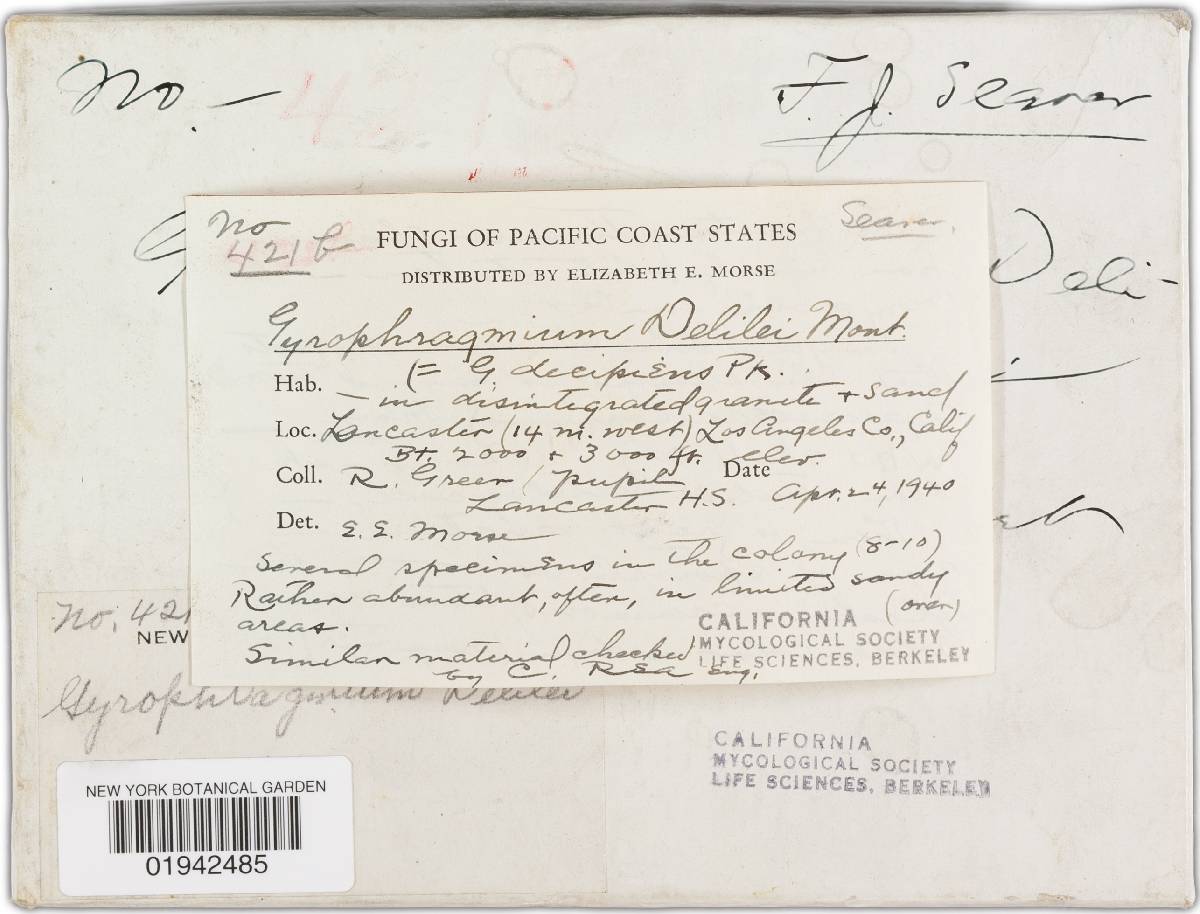 No. —
F. J. Seaver
No
421b
Seaver.
FUNGI OF PACIFIC COAST STATES
DISTRIBUTED BY ELIZABETH E. MORSE
Gyrophragmium Delilei Mont.
(= G. decipiens Pk.
Hab. — in disintegrated granite + sand
Loc. Lancaster (14 m. west) Los Angeles Co., Calif
Bt. 2000 + 3000 ft. elev.
Coll. R. Green / pupil Date
Lancaster H.S. Apr. 24, 1940
Det. E. E. Morse
Several specimens in the colony (8-10)
Rather abundant, often, in limited sandy
areas. (over)
Similar material checked
by C. REa Eng.
CALIFORNIA
MYCOLOGICAL SOCIETY
LIFE SCIENCES, BERKELEY
Deli-
No. 421
NEW
Gyrophragmium Delilei
CALIFORNIA
MYCOLOGICAL SOCIETY
LIFE SCIENCES, BERKELEY
NEW YORK BOTANICAL GARDEN
01942485